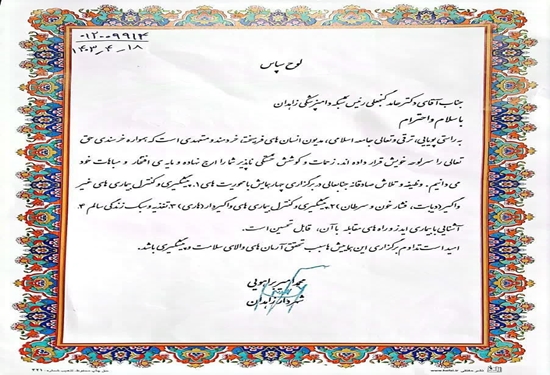 ۰۱۲۰۰۹۹۱۳
۱۴۰۳-۴-۱۸
لوح سپاس
جناب آقای دکتر حامد گنجعلی رئیس شبکه دامپزشکی زابدان
با سلام و احترام
به راستی پویایی، ترقی و تعالی جامعه اسلامی، مدیون انسان های فرهیخته، خردمند و متعهدی است که همواره خرسندی حق
تعالی را سرلوحه خویش قرار داده اند. زحمات و کوشش خستگی ناپذیر شما را ارج نهاده و مایه ی افتخار و مباهات خود
می دانیم. وظیفه و تلاش صادقانه جنابعالی در برگزاری چهار همایش با محوریت های ۱. پیشگیری و کنترل بیماری های غیر
واگیر (دیابت، فشار خون و سرطان) ۲. پیشگیری و کنترل بیماری های واگیردار (هاری) ۳. تغذیه و سبک زندگی سالم ۴.
آشنایی با بیماری ایدز و راه های مقابله با آن، قابل تحسین است.
امید است تداوم برگزاری این همایش ها سبب تحقق آرمان های والای سلامت و پیشگیری باشد.
شهردار زابدان